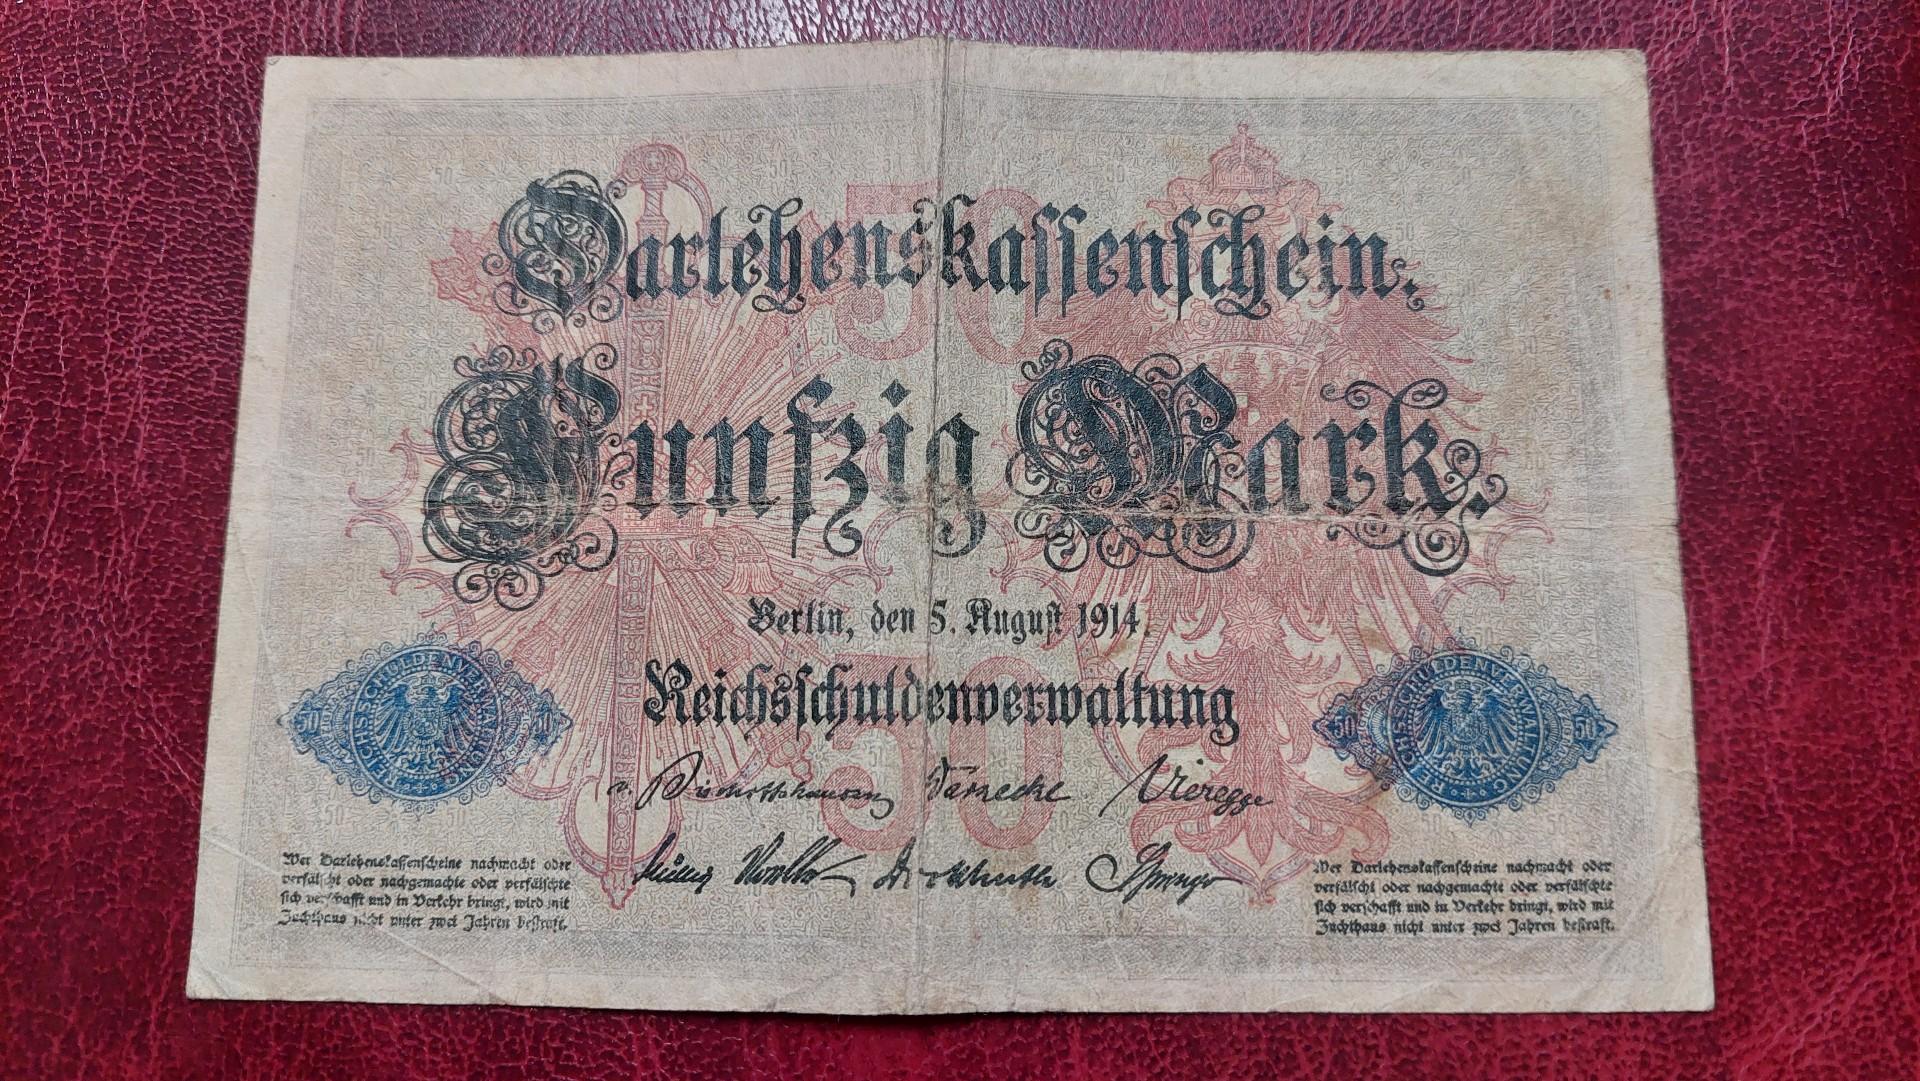 Darlehenskassenschein.
50
Fünfzig Mark.
Berlin, den 5. August 1914.
Reichsschuldenverwaltung
50
v. Bischoffshausen Warnecke Vieregge
Müller Dickhuth Springer
REICHSSCHULDENVERWALTUNG
50 50
REICHSSCHULDENVERWALTUNG
50 50
Wer Darlehenskassenscheine nachmacht oder
verfälscht oder nachgemachte oder verfälschte
sich verschafft und in Verkehr bringt, wird mit
Zuchthaus nicht unter zwei Jahren bestraft.
Wer Darlehenskassenscheine nachmacht oder
verfälscht oder nachgemachte oder verfälschte
sich verschafft und in Verkehr bringt, wird mit
Zuchthaus nicht unter zwei Jahren bestraft.